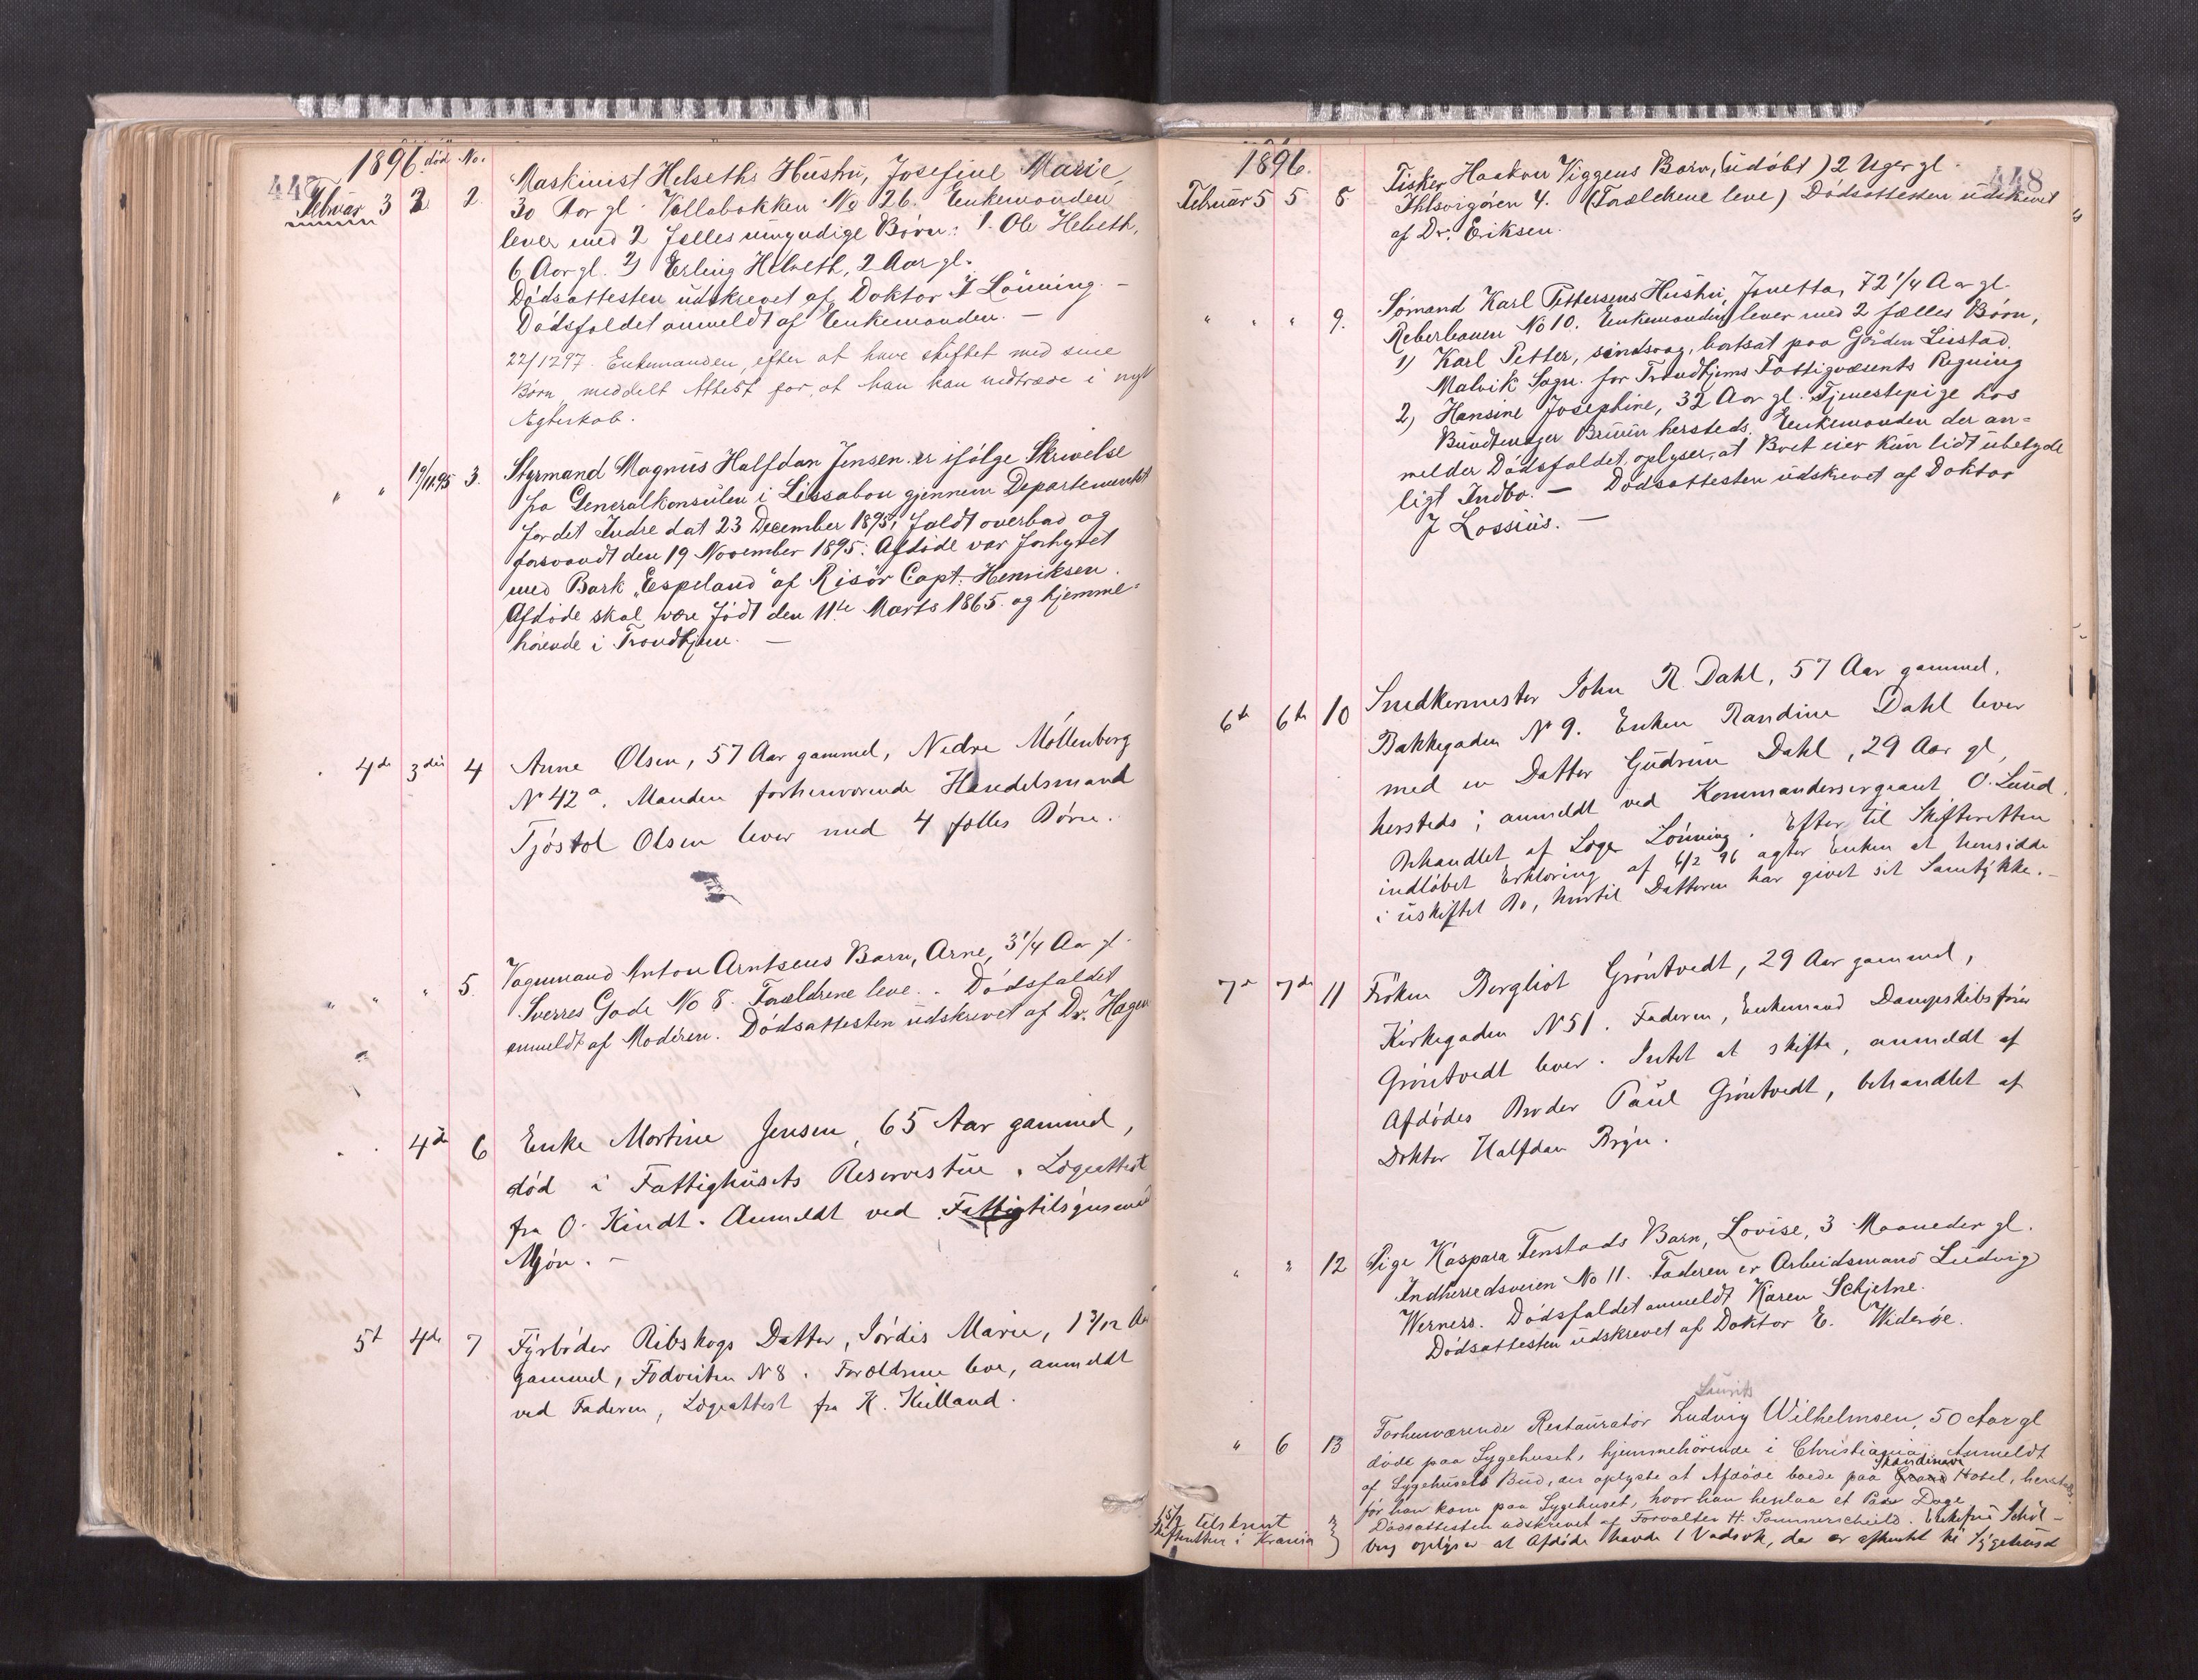 448
1896. død No.
Februar 3 2 2.
Maskinist Helseths Hustru, Josefine Marie
30 Aar gl. Vollabakken No 26. Enkemanden
lever med 2 fælles umyndige Børn: 1. Ole Helseth,
6 Aar gl. 2) Erling Helseth, 2 Aar gl.
Dødsattesten udskrevet af Doktor I Lønning. –
Dødsfaldet anmeldt af Enkemanden. –
22/12 97. Enkemanden, efter at have skiftet med sine
Børn, meddelt Attest for, at han kan indtræde i nyt
Ægteskab.
" " 19/11 95 3. Styrmand Magnus Halfdan Jensen er ifølge Skrivelse
fra Generalkonsulen i Lissabon gjennem Departementet
for det Indre dat 23 December 1895, faldt overbord og
forsvandt den 19 November 1895. Afdøde var forhyret
med Bark „Espeland" af Risør Capt. Henriksen.
Afdøde skal være født den 11te Marts 1865. og hjemme-
hørende i Trondhjem. –
4de 3die 4 Anne Olsen, 57 Aar gammel, Nedre Møllenberg
N 42a. Manden forhenværende Handelsmand
Tjøstol Olsen lever med 4 fælles Børn.
" " " 5. Vognmand Anton Arntsens Barn, Arne, 3 1/4 Aar gl.
Sverres Gade No 8. Forældrene leve. Dødsfaldet
anmeldt af Moderen. Dødsattesten udskrevet af Dr. Hagen
" 4de 6 Enke Martine Jensen, 65 Aar gammel,
død i Fattighusets Reservestue. Lægeattest
fra O. Kindt. Anmeldt ved Fattigtilsynsmand
Mjøn. –
5t 4de 7 Fyrbøder Ribskogs Datter, Jørdis Marie, 1 3/12 Aar
gammel, Fodveiten N 8. Forældrene leve, anmeldt
ved Faderen, Lægeattest fra K. Kielland.
448
1896.
Februar 5 5 8 Fisker Haakon Viggens Barn, (udøbt) 2 Uger gl.
Ihlsvigøren 4. (Forældrene leve) Dødsattesten udskrevet
af Dr. Eriksen.
" " " 9. Sømand Karl Pettersens Hustru, Jonetta, 72 1/4 Aar gl.
Reberbanen No 10. Enkemanden lever med 2 fælles Børn,
1) Karl Petter, sindssvag, bortsat paa Gården Leistad
Malvik Sogn. for Trondhjems Fattigvæsents Regning
2) Hansine Josephine, 32 Aar gl. Tjenestepige hos
Bundtmager Bruun hersteds. Enkemanden der an-
melder Dødsfaldet, oplyser, at Boet eier kun lidt ubetyde
ligt Indbo. – Dødsattesten udskrevet af Doktor
J Lossius. –
6te 6te 10 Snedkermester John R. Dahl, 57 Aar gammel,
Bakkegaden N 9. Enken Randine Dahl lever
med en Datter Gudrun Dahl, 29 Aar gl,
hersteds; anmeldt ved Kommandersergeant O. Lund.
Behandlet af Læge Lønning. Efter til Skifteretten
indløbet Erklæring af 6/2 96 agter Enken at hensidde
i uskiftet Bo, hvortil Datteren har givet sit Samtykke. –
7de 7de 11 Frøken Bergliot Grøntvedt, 29 Aar gammel,
Kirkegaden N 51. Faderen, Enkemand Dampskibsfører
Grøntvedt lever. Intet at skifte, anmeldt af
Afdødes Broder Paul Grøntvedt, behandlet af
Doktor Halfdan Bryn.
" " 12 Pige Kaspara Tenstads Barn, Lovise, 3 Maaneder gl.
Indherredsveien No 11. Faderen er Arbeidsmand Ludvig
Werness. Dødsfaldet anmeldt Karen Schjelne.
Dødsattesten udskrevet af Doktor E. Widerøe.
Laurits
" 6 13 Forhenværende Restauratør Ludvig Wilhelmsen, 50 Aar gl
døde paa Sygehuset, hjemmehørende i Christiania. Anmeldt
Skandinavi
af Sygehusets Bud, der oplyste at Afdøde boede paa Grand Hotel, hersteds
før han kom paa Sygehuset, hvor han henlaa et Par Dage
Dødsattesten udskrevet af Forvalter H. Sommerschield. Enkefru Schøl-
berg oplyser at Afdøde havde 1 Vadsæk, der er afhentet til Sygehuset
15/2 tilskrevet
Skifteretten i Krania